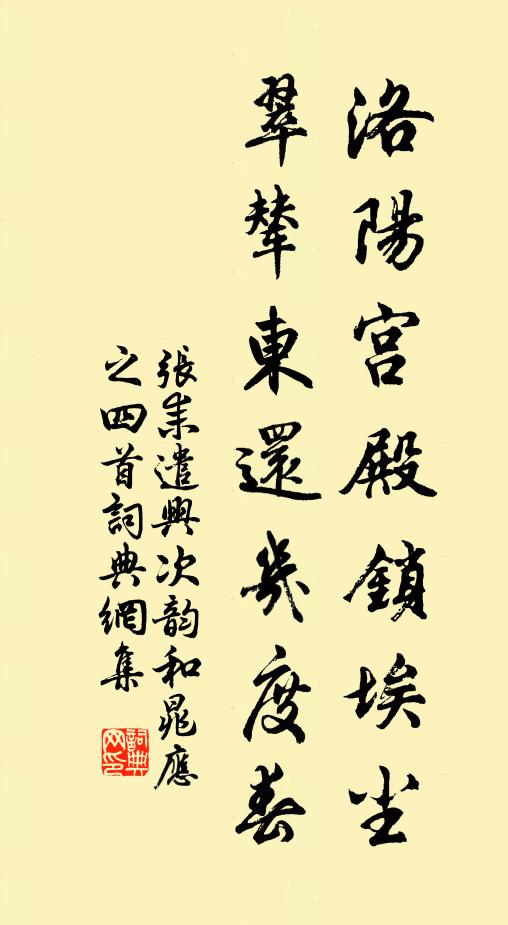 洛陽宮殿鎖埃尘
翠輦東還幾度春
張耒遣興次韵和晁應
之四首詞典網集
詞典
网印